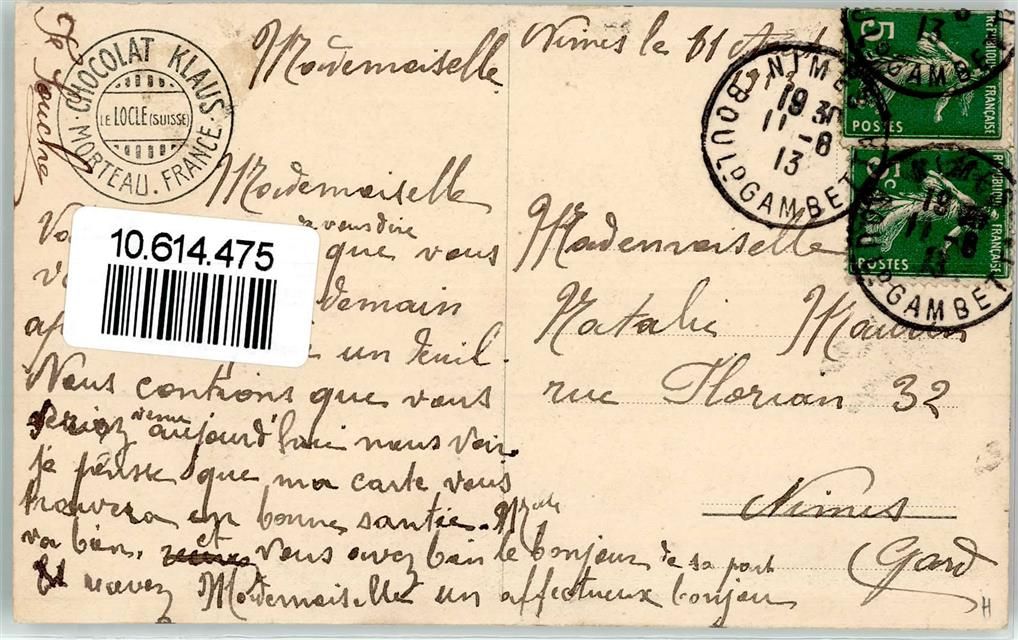 CHOCOLAT KLAUS
LE LOCLE (SUISSE)
MORTEAU. FRANCE
Mademoiselle
Nimes le 11
1913
Mademoiselle
vousdire
que vous
demain
10.614.475
un deuil
Nous contions que vous
seriez venu aujourd'hui nous voir.
je pense que ma carte vous
trouvera en bonne santée.
va bien, et vous avez bien le bonjour de sa part
Et recevez Mademoiselle un affectueux bonjour
Mademoiselle
Natalie
rue Florian 32
Nimes
Gard
NIMES
19 30
11-8
13
BOUL.D GAMBETTA
5c
REPUBLIQUE FRANÇAISE
POSTES
13
GAMBET
5c
REPUBLIQUE FRANÇAISE
POSTES
19 30
11-8
13
GAMBET
H